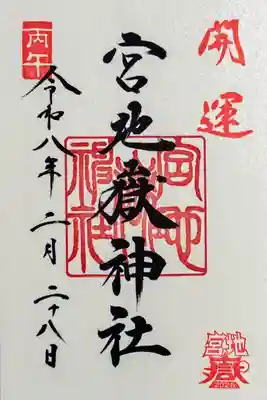 開運
宮地嶽神社
宮地嶽神社
丙午
令和八年二月二十八日
宮地嶽
2026